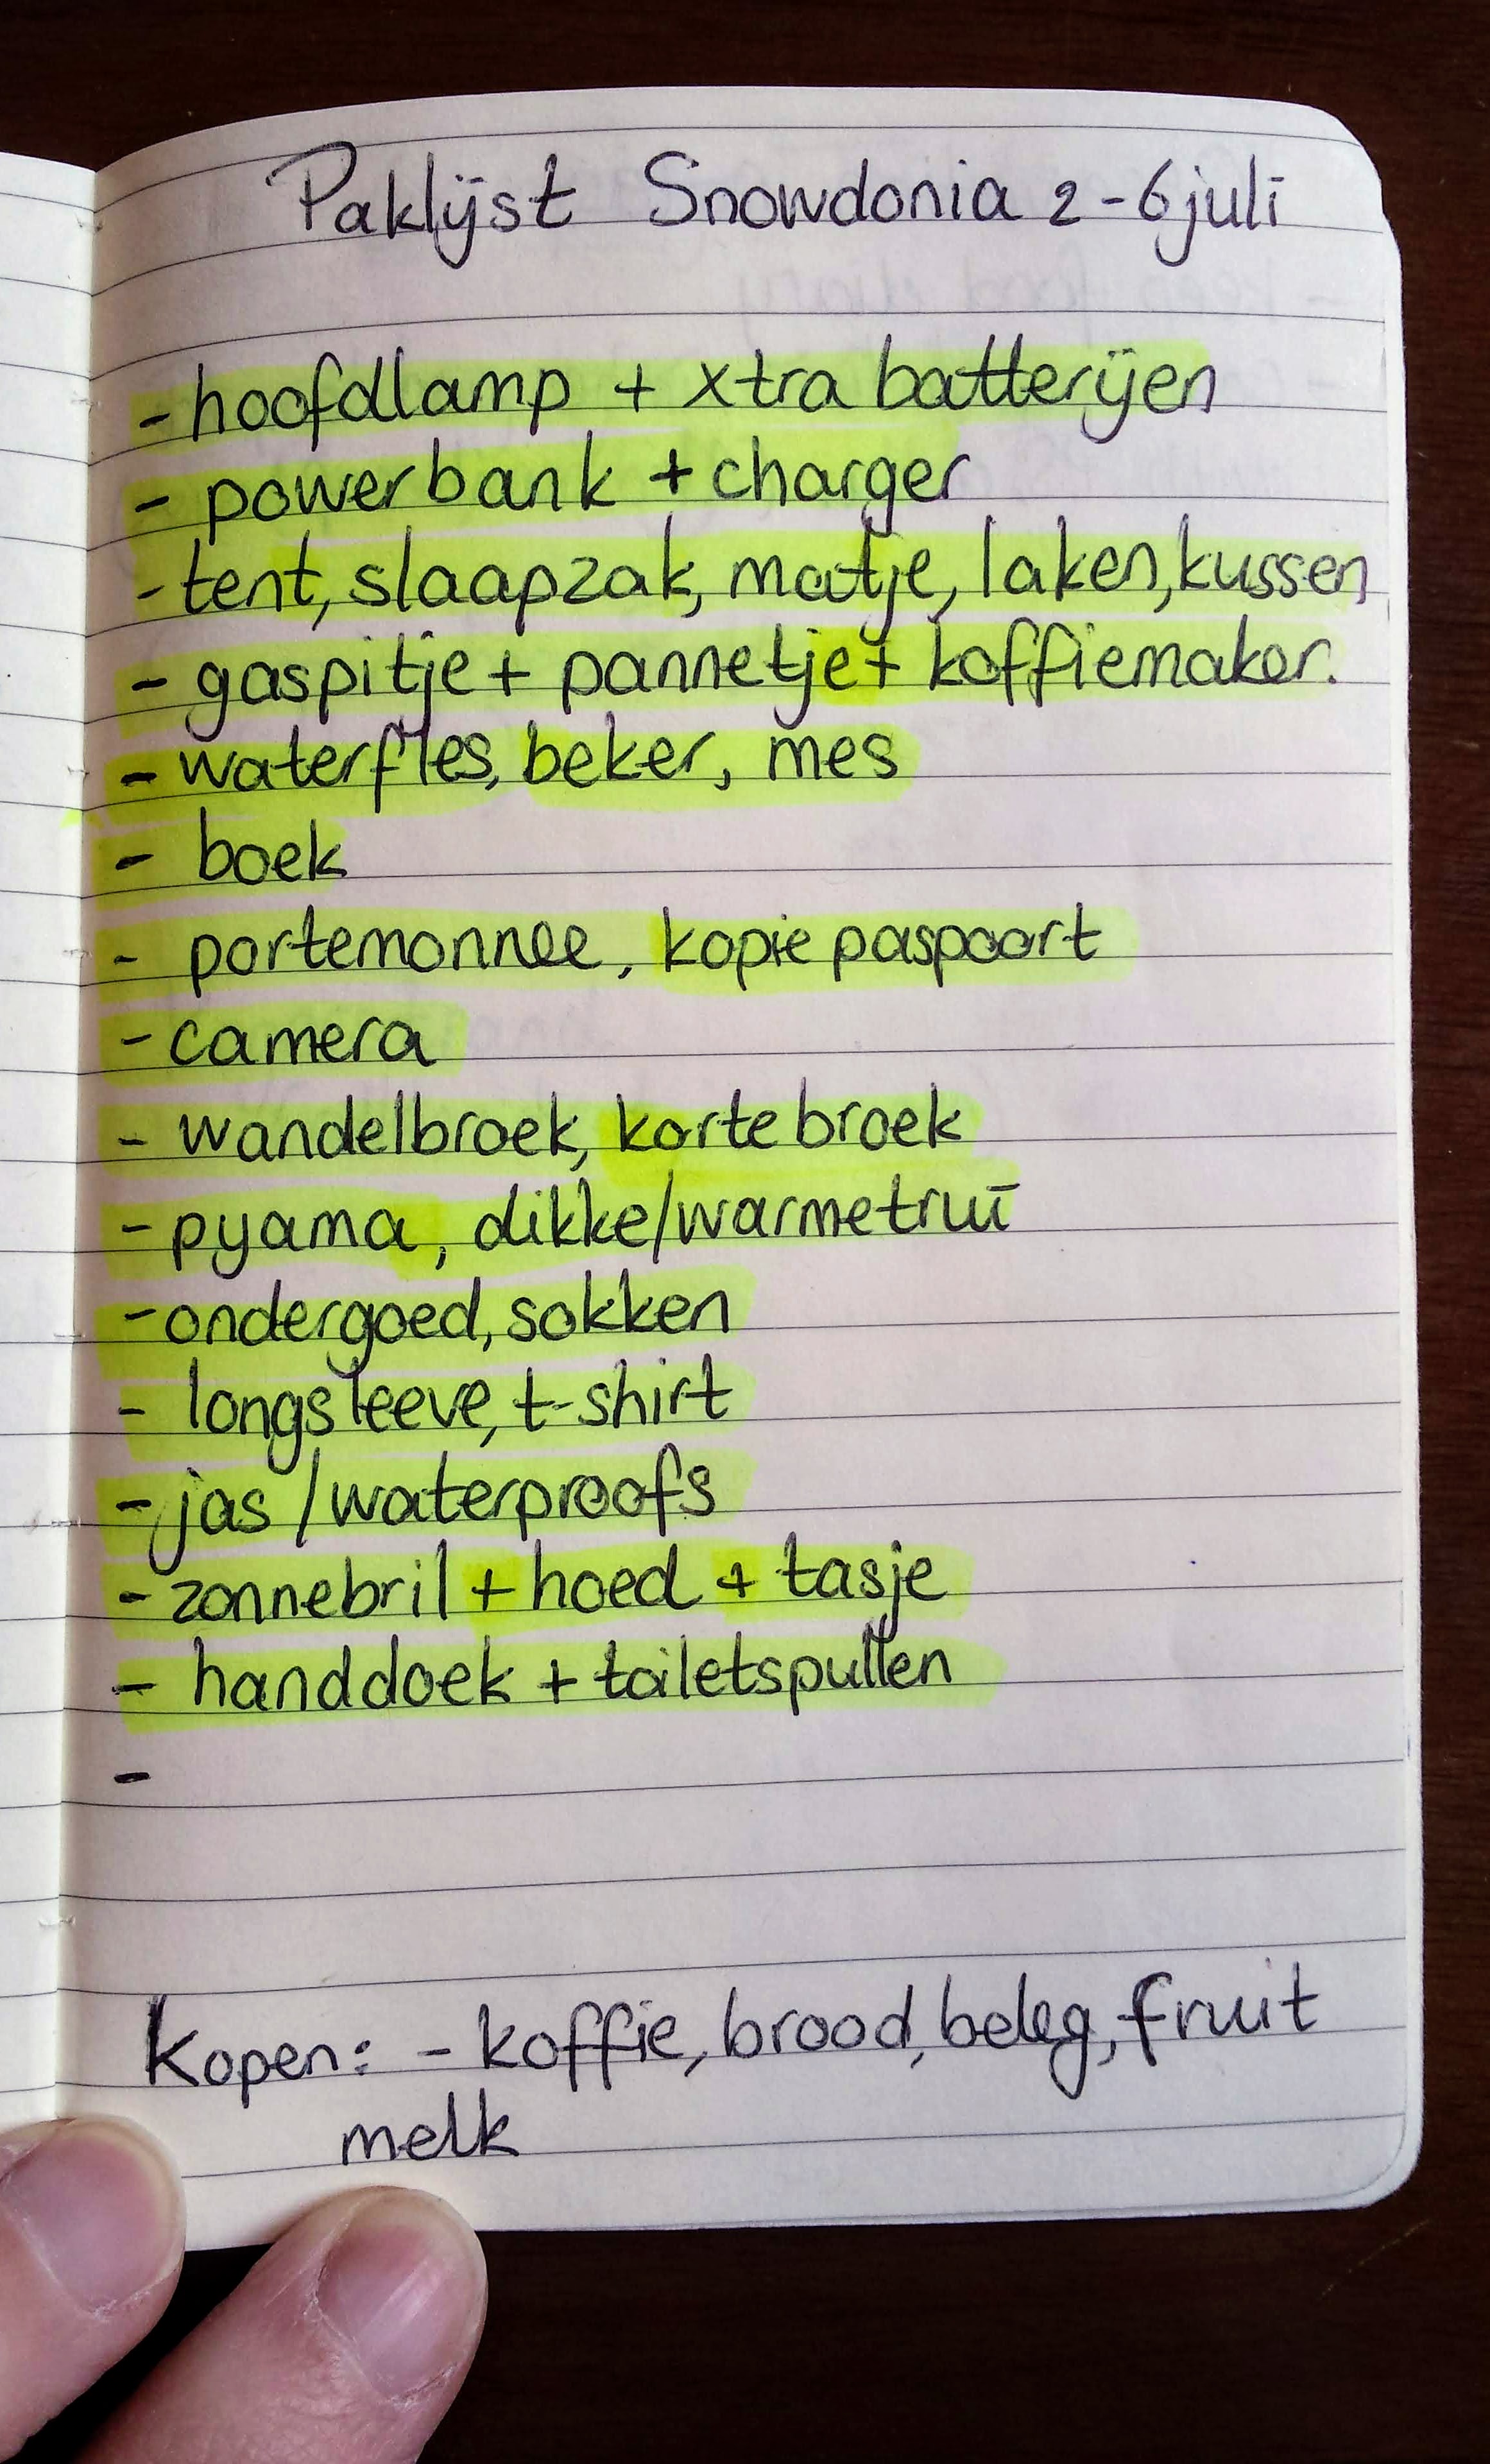 Paklijst Snowdonia 2-6 juli
- hoofdlamp + xtra batterijen
- powerbank + charger
- tent, slaapzak, matje, laken, kussen
- gaspitje + pannetje + koffiemaker.
- waterfles, beker, mes
- boek
- portemonnee, kopie paspoort
- camera
- wandelbroek, korte broek
- pyama, dikke/warme trui
- ondergoed, sokken
- longsleeve, t-shirt
- jas / waterproofs
- zonnebril + hoed + tasje
- handdoek + toiletspullen
-
Kopen: - koffie, brood, beleg, fruit
melk